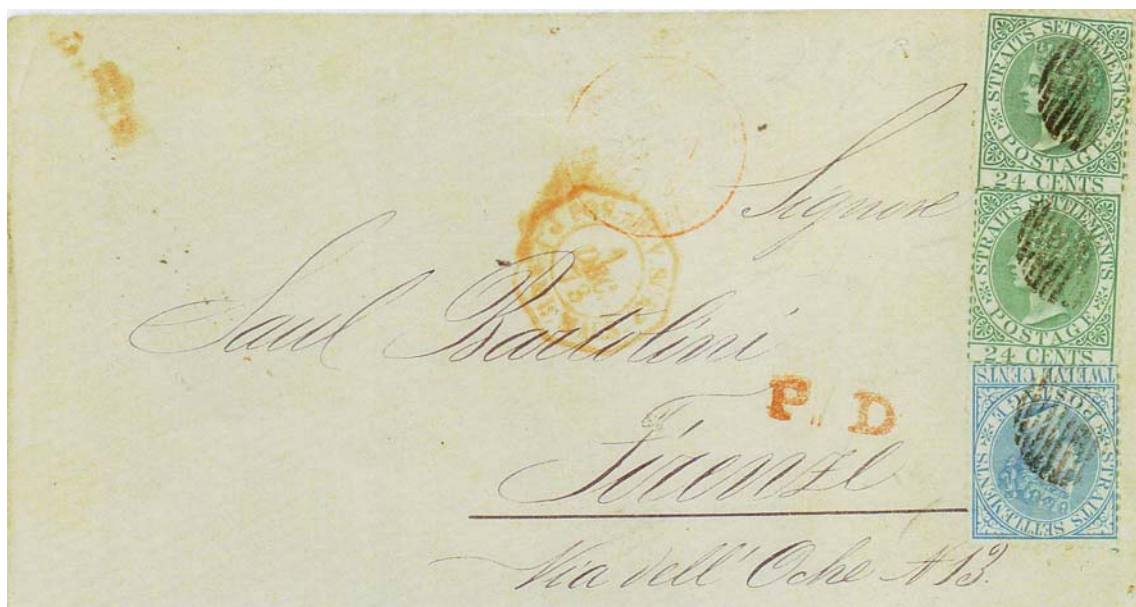 STRAITS SETTLEMENTS
POSTAGE
24 CENTS
STRAITS SETTLEMENTS
POSTAGE
24 CENTS
STRAITS SETTLEMENTS
POSTAGE
TWELVE CENTS
Signore
Saul Bartolini
P. D
Firenze
Via dell' Oche N 13.